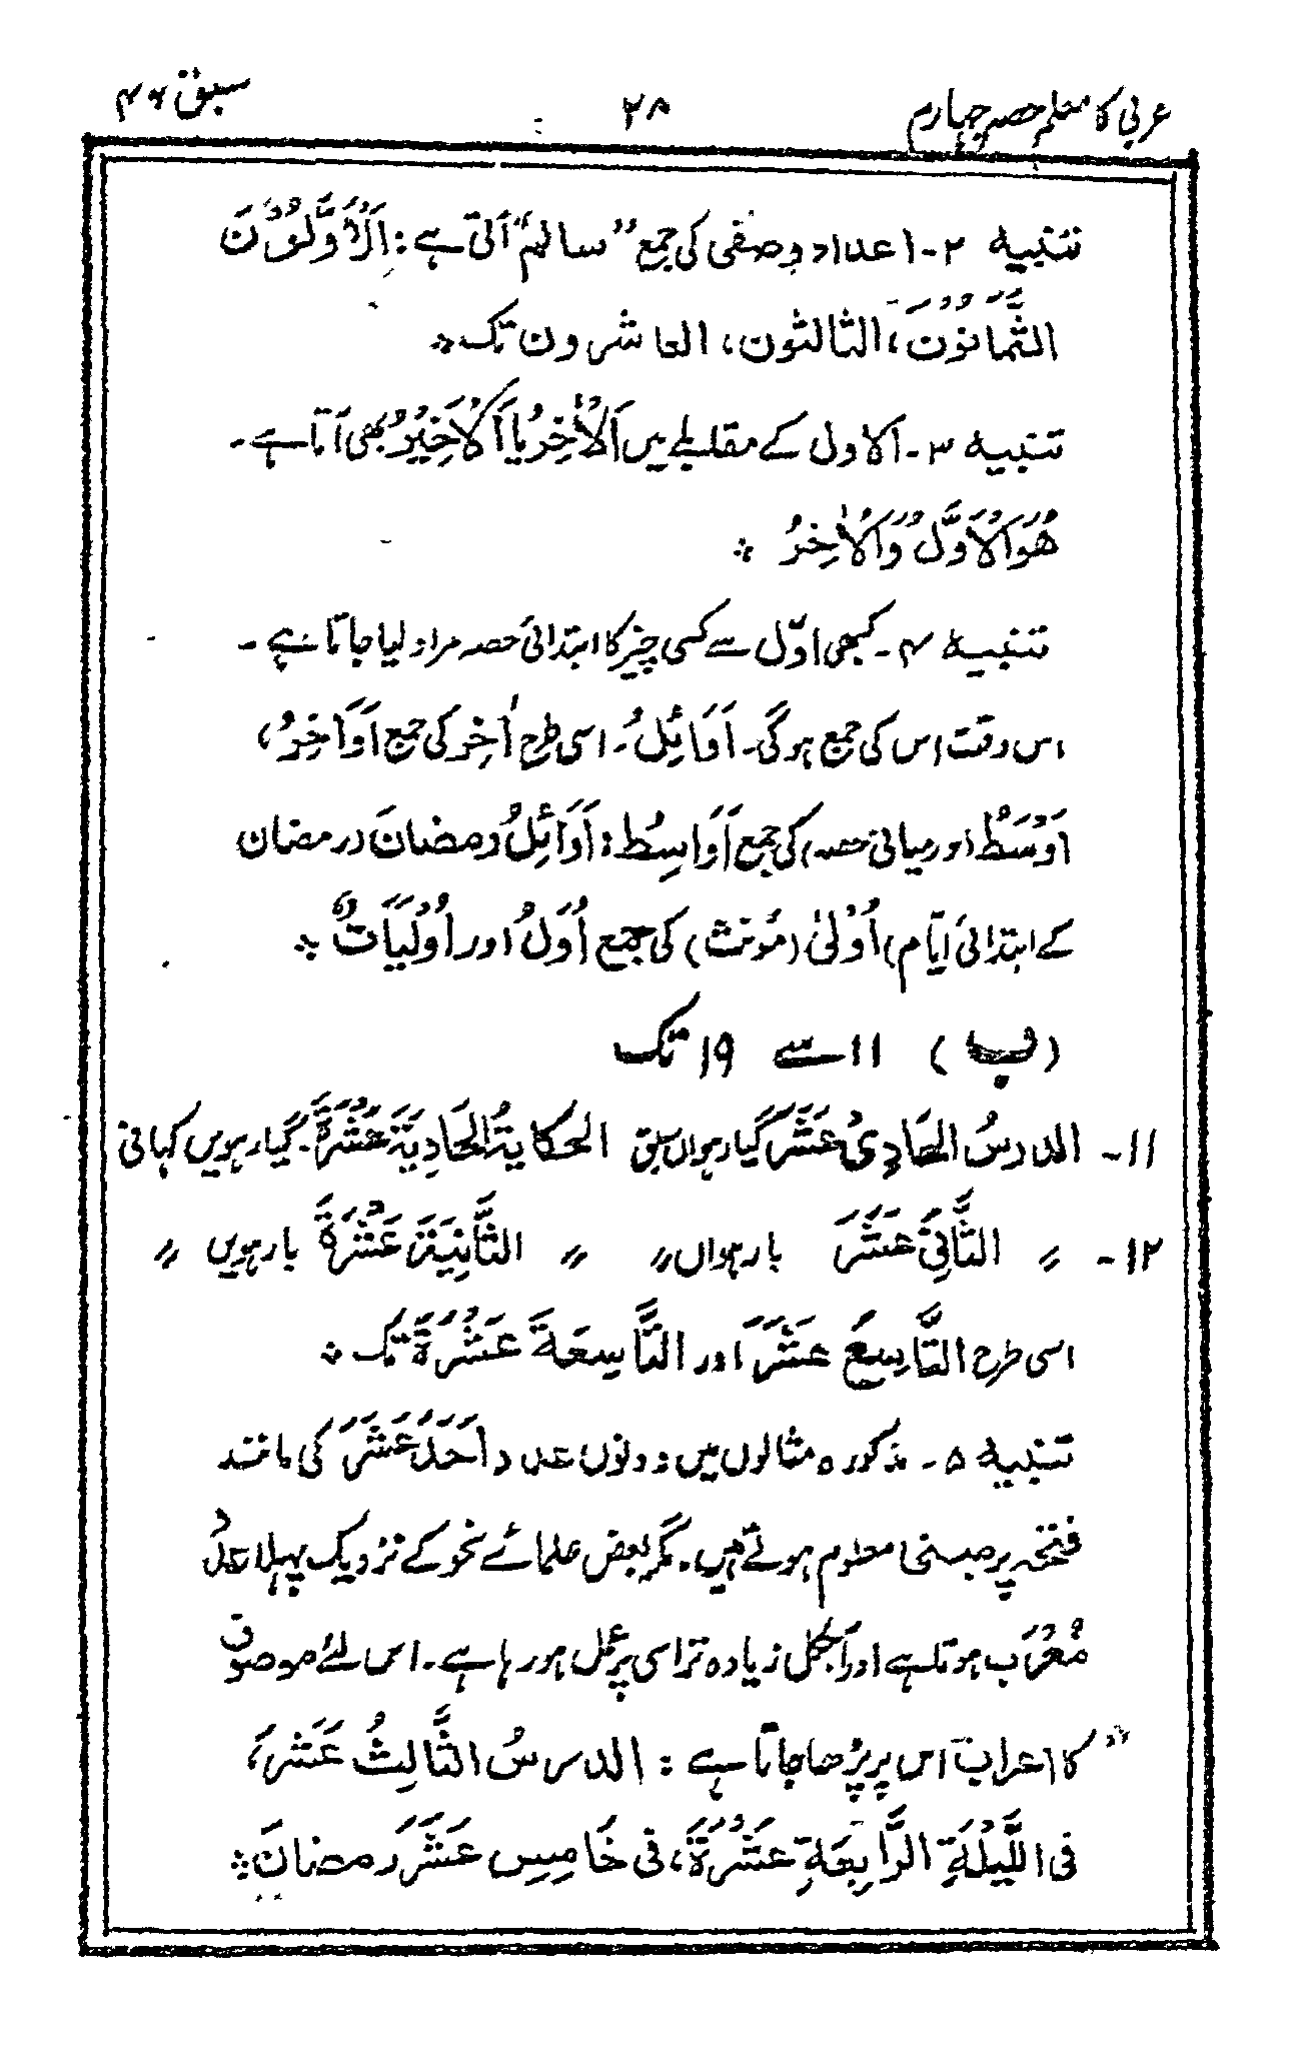 عربی کا معلم حصہ چہارم ۲۸ سبق ۴۶
تنبیہ ۲-اعداد وصفی کی جمع ”سالم“ آتی ہے: اَلْاَوَّلُوْنَ
الثَّمَانُوْنَ، الثالثون، العاشرون تک ؞
تنبیہ ۳-اَلاول کے مقابلے میں اَلْاٰخِرُ یا اَلْاَخِیْرُ بھی آتا ہے-
هُوَ الْاَوَّلُ وَالْاٰخِرُ ؞
تنبیہ ۴-کبھی اوّل سے کسی چیز کا ابتدائی حصہ مراد لیا جاتا ہے-
اس وقت اس کی جمع ہوگی- اَوَائِلُ- اسی طرح اٰخِر کی جمع اَوَاخِرُ،
اَوْسَطُ (درمیانی حصہ) کی جمع اَوَاسِطُ: اَوَائِلُ رمضانَ (رمضان
کے ابتدائی ایّام) اُوْلیٰ (مؤنث) کی جمع اُوَلُ اور اُوْلَیَاتٌ ؞
(ب) ۱۱ سے ۱۹ تک
۱۱- الدرسُ الحَادِیُ عَشَرَ گیارہواں سبق الحکایةُ الحَادِیَةَ عَشْرَةَ- گیارہویں کہانی
۱۲- ״ الثَّانِیَ عَشَرَ بارہواں ״ ״ الثَّانِیَةَ عَشْرَةَ بارہویں ״
اسی طرح التَّاسِعَ عَشَرَ اور التَّاسِعَةَ عَشْرَةَ تک ؞
تنبیہ ۵- مذکورہ مثالوں میں دونوں عدد اَحَدَ عَشَرَ کی مانند
فتحہ پر مبنی معلوم ہوتے ہیں- مگر بعض علمائے نحو کے نزدیک پہلا عدد
مُعْرَب ہوتا ہے اور آجکل زیادہ تر اسی پر عمل ہو رہا ہے- اس لئے موصوف
کا اعراب اس پر پڑھا جاتا ہے: الدرسُ الثَّالِثُ عَشَرَ،
فی اللَّیْلَةِ الرَّابِعَةِ عَشْرَةَ، فی خَامِسِ عَشَرَ رمضانَ ؞